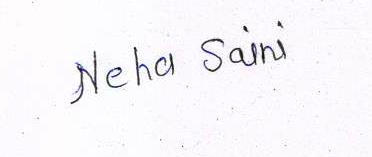 Neha Saini